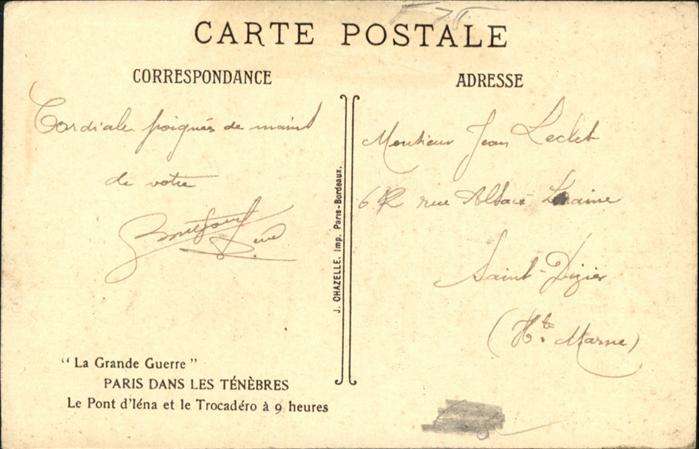 CARTE POSTALE
CORRESPONDANCE
ADRESSE
Cordiale poignés de maint
de votre
Monsieur Jean Leclet
62 rue Alsace Loraine
Saint-Dizier
(Hte Marne)
J. CHAZELLE, Imp. Paris-Bordeaux.
"La Grande Guerre"
PARIS DANS LES TÉNÈBRES
Le Pont d'Iéna et le Trocadéro à 9 heures